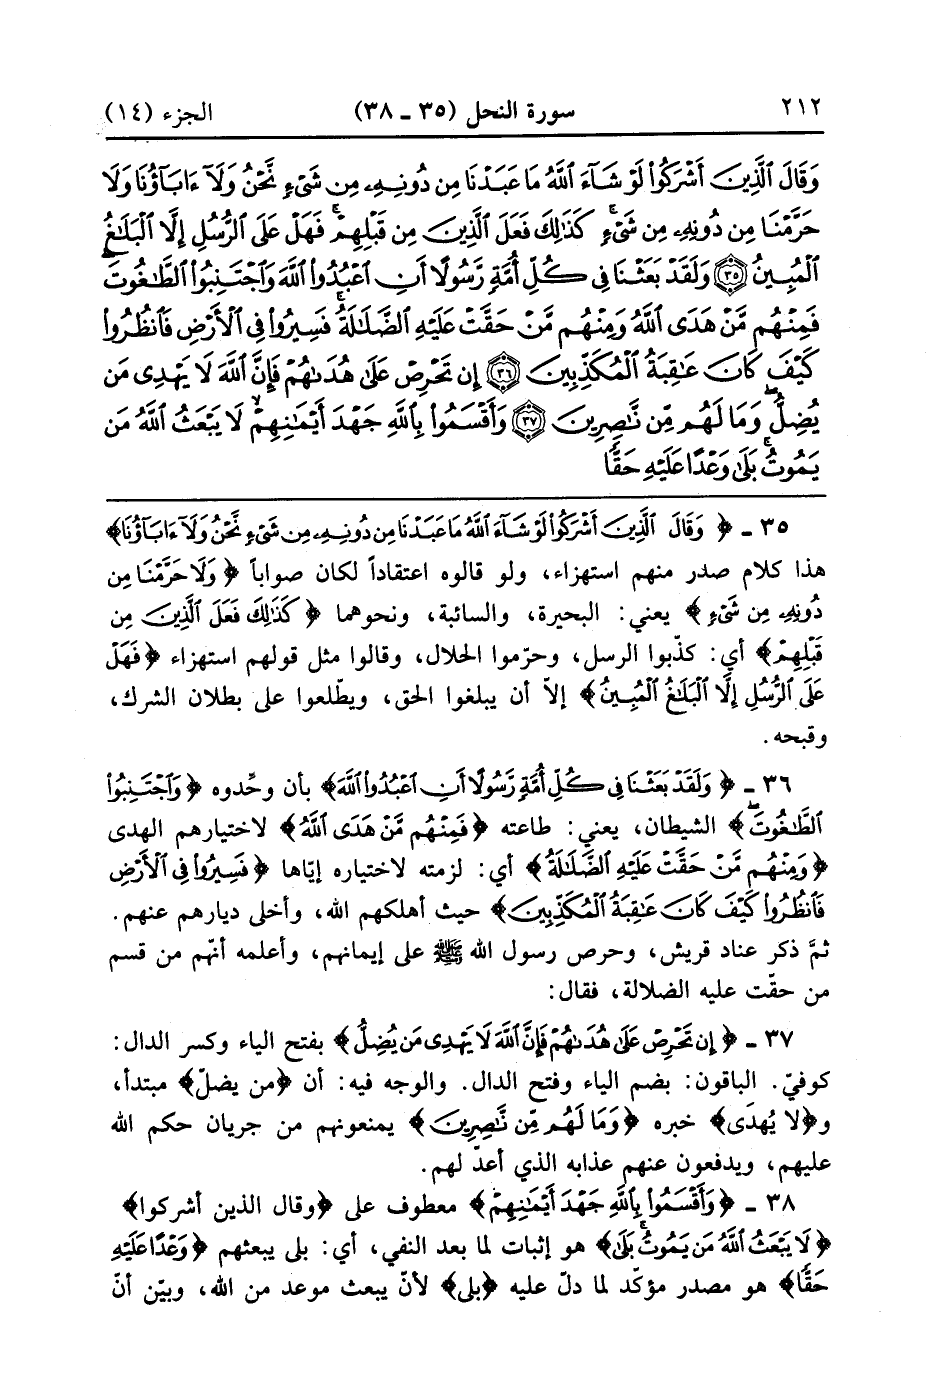 ٢١٢ سورة النحل (٣٥ ـ ٣٨) الجزء (١٤)
وَقَالَ ٱلَّذِينَ أَشْرَكُوا۟ لَوْ شَآءَ ٱللَّهُ مَا عَبَدْنَا مِن دُونِهِۦ مِن شَىْءٍ نَّحْنُ وَلَآ ءَابَآؤُنَا وَلَا
حَرَّمْنَا مِن دُونِهِۦ مِن شَىْءٍ ۚ كَذَٰلِكَ فَعَلَ ٱلَّذِينَ مِن قَبْلِهِمْ ۚ فَهَلْ عَلَى ٱلرُّسُلِ إِلَّا ٱلْبَلَٰغُ
ٱلْمُبِينُ ٣٥ وَلَقَدْ بَعَثْنَا فِى كُلِّ أُمَّةٍ رَّسُولًا أَنِ ٱعْبُدُوا۟ ٱللَّهَ وَٱجْتَنِبُوا۟ ٱلطَّٰغُوتَ ۖ
فَمِنْهُم مَّنْ هَدَى ٱللَّهُ وَمِنْهُم مَّنْ حَقَّتْ عَلَيْهِ ٱلضَّلَٰلَةُ ۚ فَسِيرُوا۟ فِى ٱلْأَرْضِ فَٱنظُرُوا۟
كَيْفَ كَانَ عَٰقِبَةُ ٱلْمُكَذِّبِينَ ٣٦ إِن تَحْرِصْ عَلَىٰ هُدَىٰهُمْ فَإِنَّ ٱللَّهَ لَا يَهْدِى مَن
يُضِلُّ ۖ وَمَا لَهُم مِّن نَّٰصِرِينَ ٣٧ وَأَقْسَمُوا۟ بِٱللَّهِ جَهْدَ أَيْمَٰنِهِمْ ۙ لَا يَبْعَثُ ٱللَّهُ مَن
يَمُوتُ ۚ بَلَىٰ وَعْدًا عَلَيْهِ حَقًّا
٣٥ ـ ﴿وَقَالَ ٱلَّذِينَ أَشْرَكُوا۟ لَوْ شَآءَ ٱللَّهُ مَا عَبَدْنَا مِن دُونِهِۦ مِن شَىْءٍ نَّحْنُ وَلَآ ءَابَآؤُنَا﴾
هذا كلام صدر منهم استهزاء، ولو قالوه اعتقاداً لكان صواباً ﴿وَلَا حَرَّمْنَا مِن
دُونِهِۦ مِن شَىْءٍ﴾ يعني: البحيرة، والسائبة، ونحوهما ﴿كَذَٰلِكَ فَعَلَ ٱلَّذِينَ مِن
قَبْلِهِمْ﴾ أي: كذّبوا الرسل، وحرّموا الحلال، وقالوا مثل قولهم استهزاء ﴿فَهَلْ
عَلَى ٱلرُّسُلِ إِلَّا ٱلْبَلَٰغُ ٱلْمُبِينُ﴾ إلاّ أن يبلغوا الحق، ويطّلعوا على بطلان الشرك،
وقبحه.
٣٦ ـ ﴿وَلَقَدْ بَعَثْنَا فِى كُلِّ أُمَّةٍ رَّسُولًا أَنِ ٱعْبُدُوا۟ ٱللَّهَ﴾ بأن وحّدوه ﴿وَٱجْتَنِبُوا۟
ٱلطَّٰغُوتَ ۖ﴾ الشيطان، يعني: طاعته ﴿فَمِنْهُم مَّنْ هَدَى ٱللَّهُ﴾ لاختيارهم الهدى
﴿وَمِنْهُم مَّنْ حَقَّتْ عَلَيْهِ ٱلضَّلَٰلَةُ﴾ أي: لزمته لاختياره إيّاها ﴿فَسِيرُوا۟ فِى ٱلْأَرْضِ
فَٱنظُرُوا۟ كَيْفَ كَانَ عَٰقِبَةُ ٱلْمُكَذِّبِينَ﴾ حيث أهلكهم الله، وأخلى ديارهم عنهم.
ثمَّ ذكر عناد قريش، وحرص رسول الله ﷺ على إيمانهم، وأعلمه أنّهم من قسم
من حقّت عليه الضلالة، فقال:
٣٧ ـ ﴿إِن تَحْرِصْ عَلَىٰ هُدَىٰهُمْ فَإِنَّ ٱللَّهَ لَا يَهْدِى مَن يُضِلُّ﴾ بفتح الياء وكسر الدال:
كوفيّ. الباقون: بضم الياء وفتح الدال. والوجه فيه: أن ﴿من يضلّ﴾ مبتدأ،
و﴿لا يُهدَى﴾ خبره ﴿وَمَا لَهُم مِّن نَّٰصِرِينَ﴾ يمنعونهم من جريان حكم الله
عليهم، ويدفعون عنهم عذابه الذي أعدّ لهم.
٣٨ ـ ﴿وَأَقْسَمُوا۟ بِٱللَّهِ جَهْدَ أَيْمَٰنِهِمْ﴾ معطوف على ﴿وقال الذين أشركوا﴾
﴿لَا يَبْعَثُ ٱللَّهُ مَن يَمُوتُ ۚ بَلَىٰ﴾ هو إثبات لما بعد النفي، أي: بلى يبعثهم ﴿وَعْدًا عَلَيْهِ
حَقًّا﴾ هو مصدر مؤكّد لما دلّ عليه ﴿بلى﴾ لأنّ يبعث موعد من الله، وبيّن أنّ